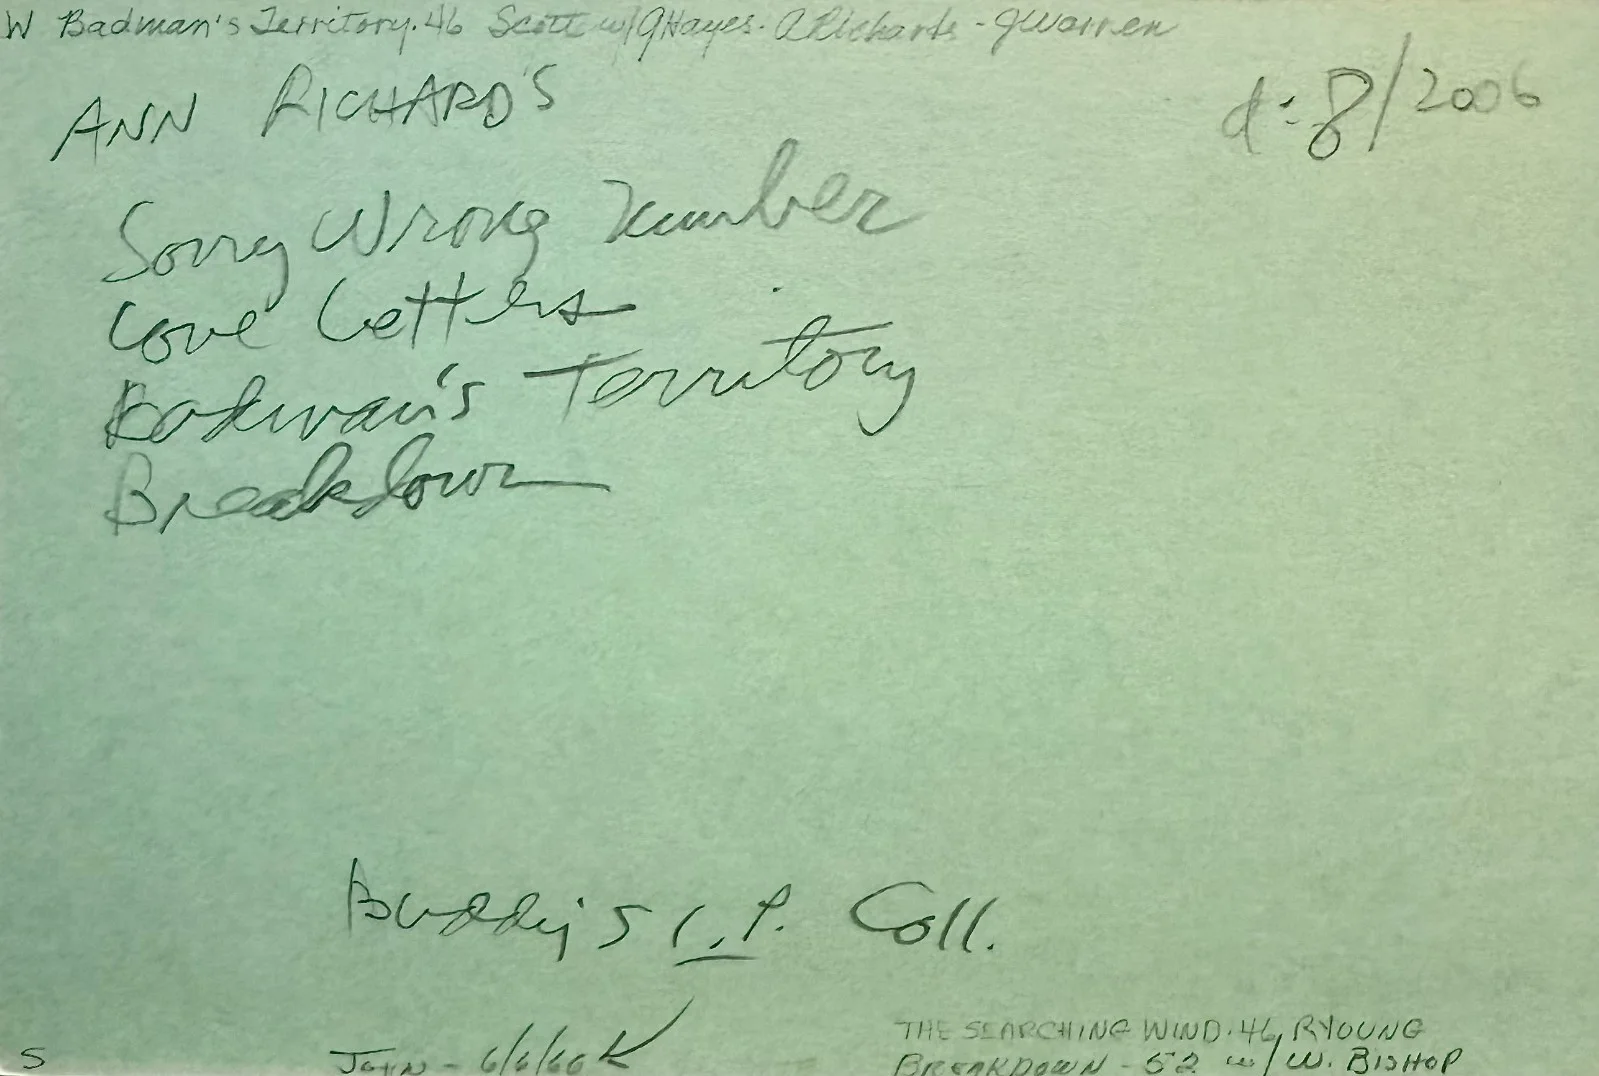 W Badman's Territory. 46 Scott w/ GHayes - ARichards - JWarren
ANN RICHARD'S
d: 8/2006
Sorry Wrong Number
Love Letters
Badman's Territory
Breakdown
Buddy's L.P. Coll.
THE SEARCHING WIND. 46, RYOUNG
S John - 6/6/60
BREAKDOWN - 52 w/ W. BISHOP